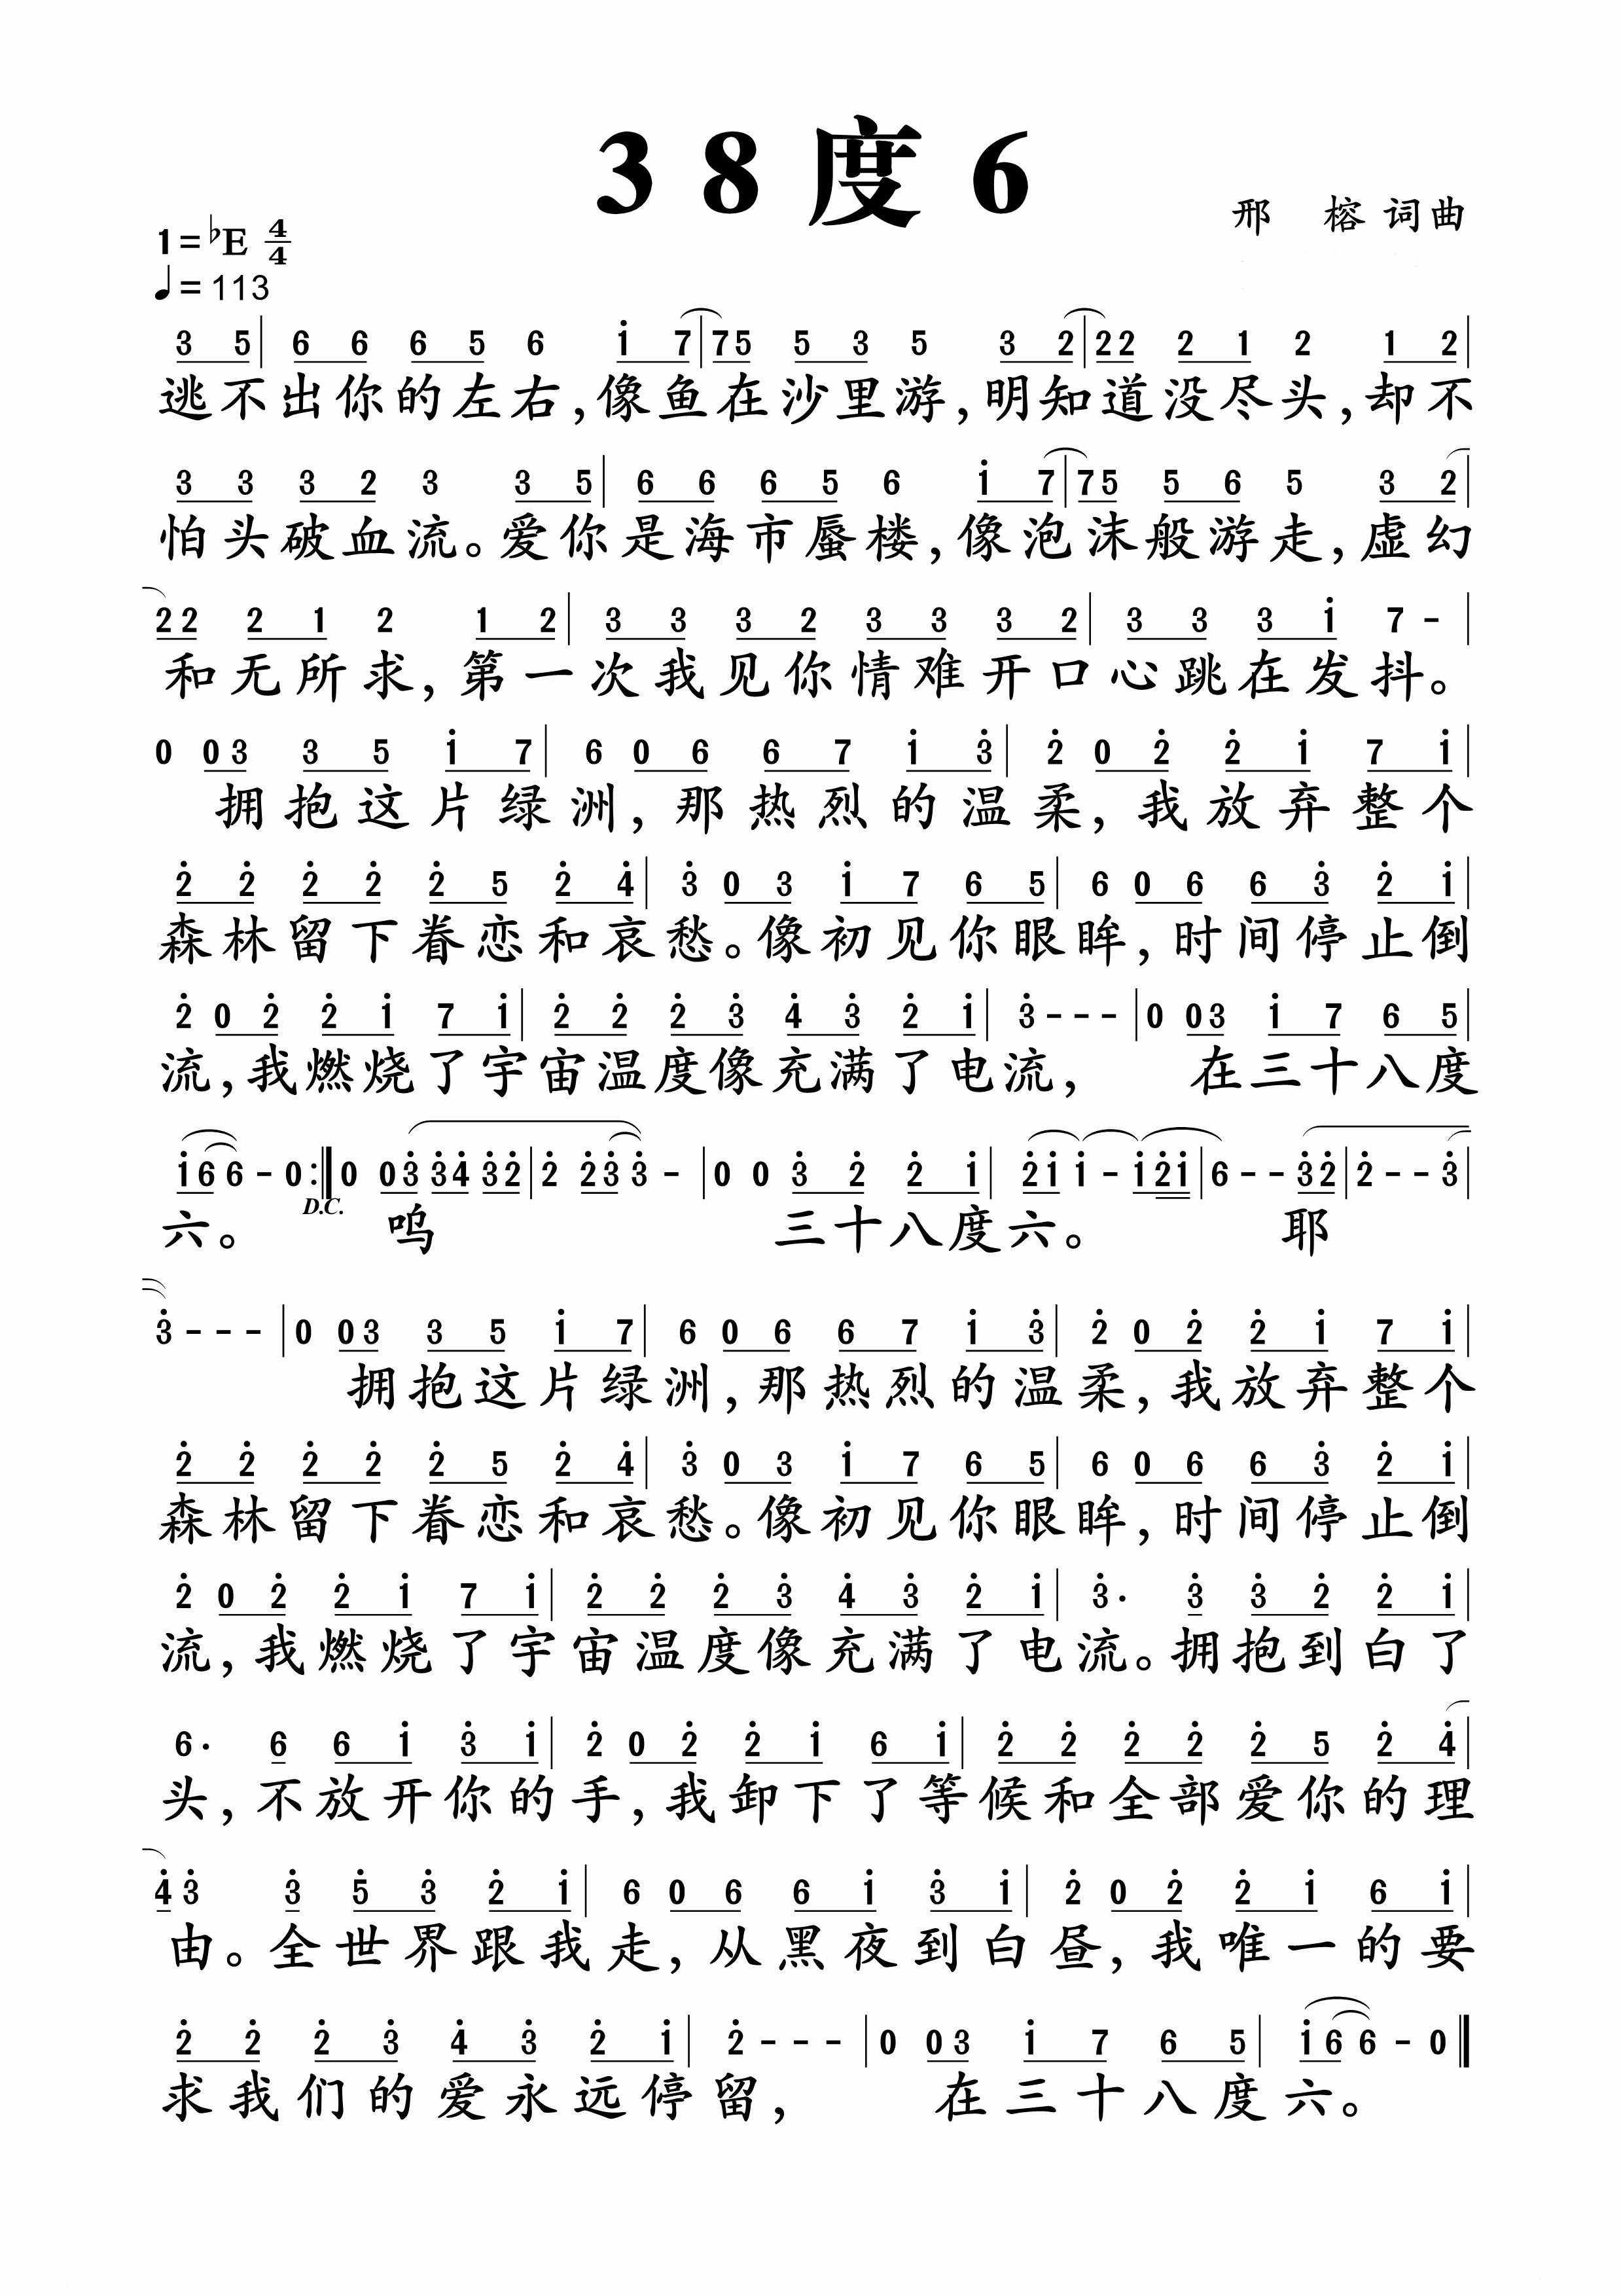 38度6
邢 榕 词曲
1=♭E 4/4
♩=113
3 5 | 6 6 6 5 6 i 7 | 7 5 5 3 5 3 2 | 2 2 2 1 2 1 2 |
逃不出你的左右,像鱼在沙里游,明知道没尽头,却不
3 3 3 2 3 3 5 | 6 6 6 5 6 i 7 | 7 5 5 6 5 3 2 |
怕头破血流。爱你是海市蜃楼,像泡沫般游走,虚幻
2 2 2 1 2 1 2 | 3 3 3 2 3 3 3 2 | 3 3 3 i 7 - |
和无所求,第一次我见你情难开口心跳在发抖。
0 0 3 3 5 i 7 | 6 0 6 6 7 i 3̇ | 2̇ 0 2̇ 2̇ i 7 i |
拥抱这片绿洲,那热烈的温柔,我放弃整个
2̇ 2̇ 2̇ 2̇ 2̇ 5 2̇ 4̇ | 3̇ 0 3 i 7 6 5 | 6 0 6 6 3̇ 2̇ i |
森林留下眷恋和哀愁。像初见你眼眸,时间停止倒
2̇ 0 2̇ 2̇ i 7 i | 2̇ 2̇ 2̇ 3̇ 4̇ 3̇ 2̇ i | 3̇ - - - | 0 0 3 i 7 6 5 |
流,我燃烧了宇宙温度像充满了电流, 在三十八度
i 6 6 - 0 :‖ 0 0 3̇ 3̇ 4̇ 3̇ 2̇ | 2̇ 2̇ 3̇ 3̇ - | 0 0 3̇ 2̇ 2̇ i | 2̇ i i - i 2̇ i | 6 - - 3̇ 2̇ | 2̇ - - 3̇ |
D.C.
六。 呜 三十八度六。 耶
3̇ - - - | 0 0 3 3 5 i 7 | 6 0 6 6 7 i 3̇ | 2̇ 0 2̇ 2̇ i 7 i |
拥抱这片绿洲,那热烈的温柔,我放弃整个
2̇ 2̇ 2̇ 2̇ 2̇ 5 2̇ 4̇ | 3̇ 0 3 i 7 6 5 | 6 0 6 6 3̇ 2̇ i |
森林留下眷恋和哀愁。像初见你眼眸,时间停止倒
2̇ 0 2̇ 2̇ i 7 i | 2̇ 2̇ 2̇ 3̇ 4̇ 3̇ 2̇ i | 3̇. 3̇ 3̇ 2̇ 2̇ i |
流,我燃烧了宇宙温度像充满了电流。拥抱到白了
6. 6 6 i 3̇ i | 2̇ 0 2̇ 2̇ i 6 i | 2̇ 2̇ 2̇ 2̇ 2̇ 5 2̇ 4̇ |
头,不放开你的手,我卸下了等候和全部爱你的理
4̇ 3̇ 3̇ 5̇ 3̇ 2̇ i | 6 0 6 6 i 3̇ i | 2̇ 0 2̇ 2̇ i 6 i |
由。全世界跟我走,从黑夜到白昼,我唯一的要
2̇ 2̇ 2̇ 3̇ 4̇ 3̇ 2̇ i | 2̇ - - - | 0 0 3 i 7 6 5 | i 6 6 - 0 ‖
求我们的爱永远停留, 在三十八度六。